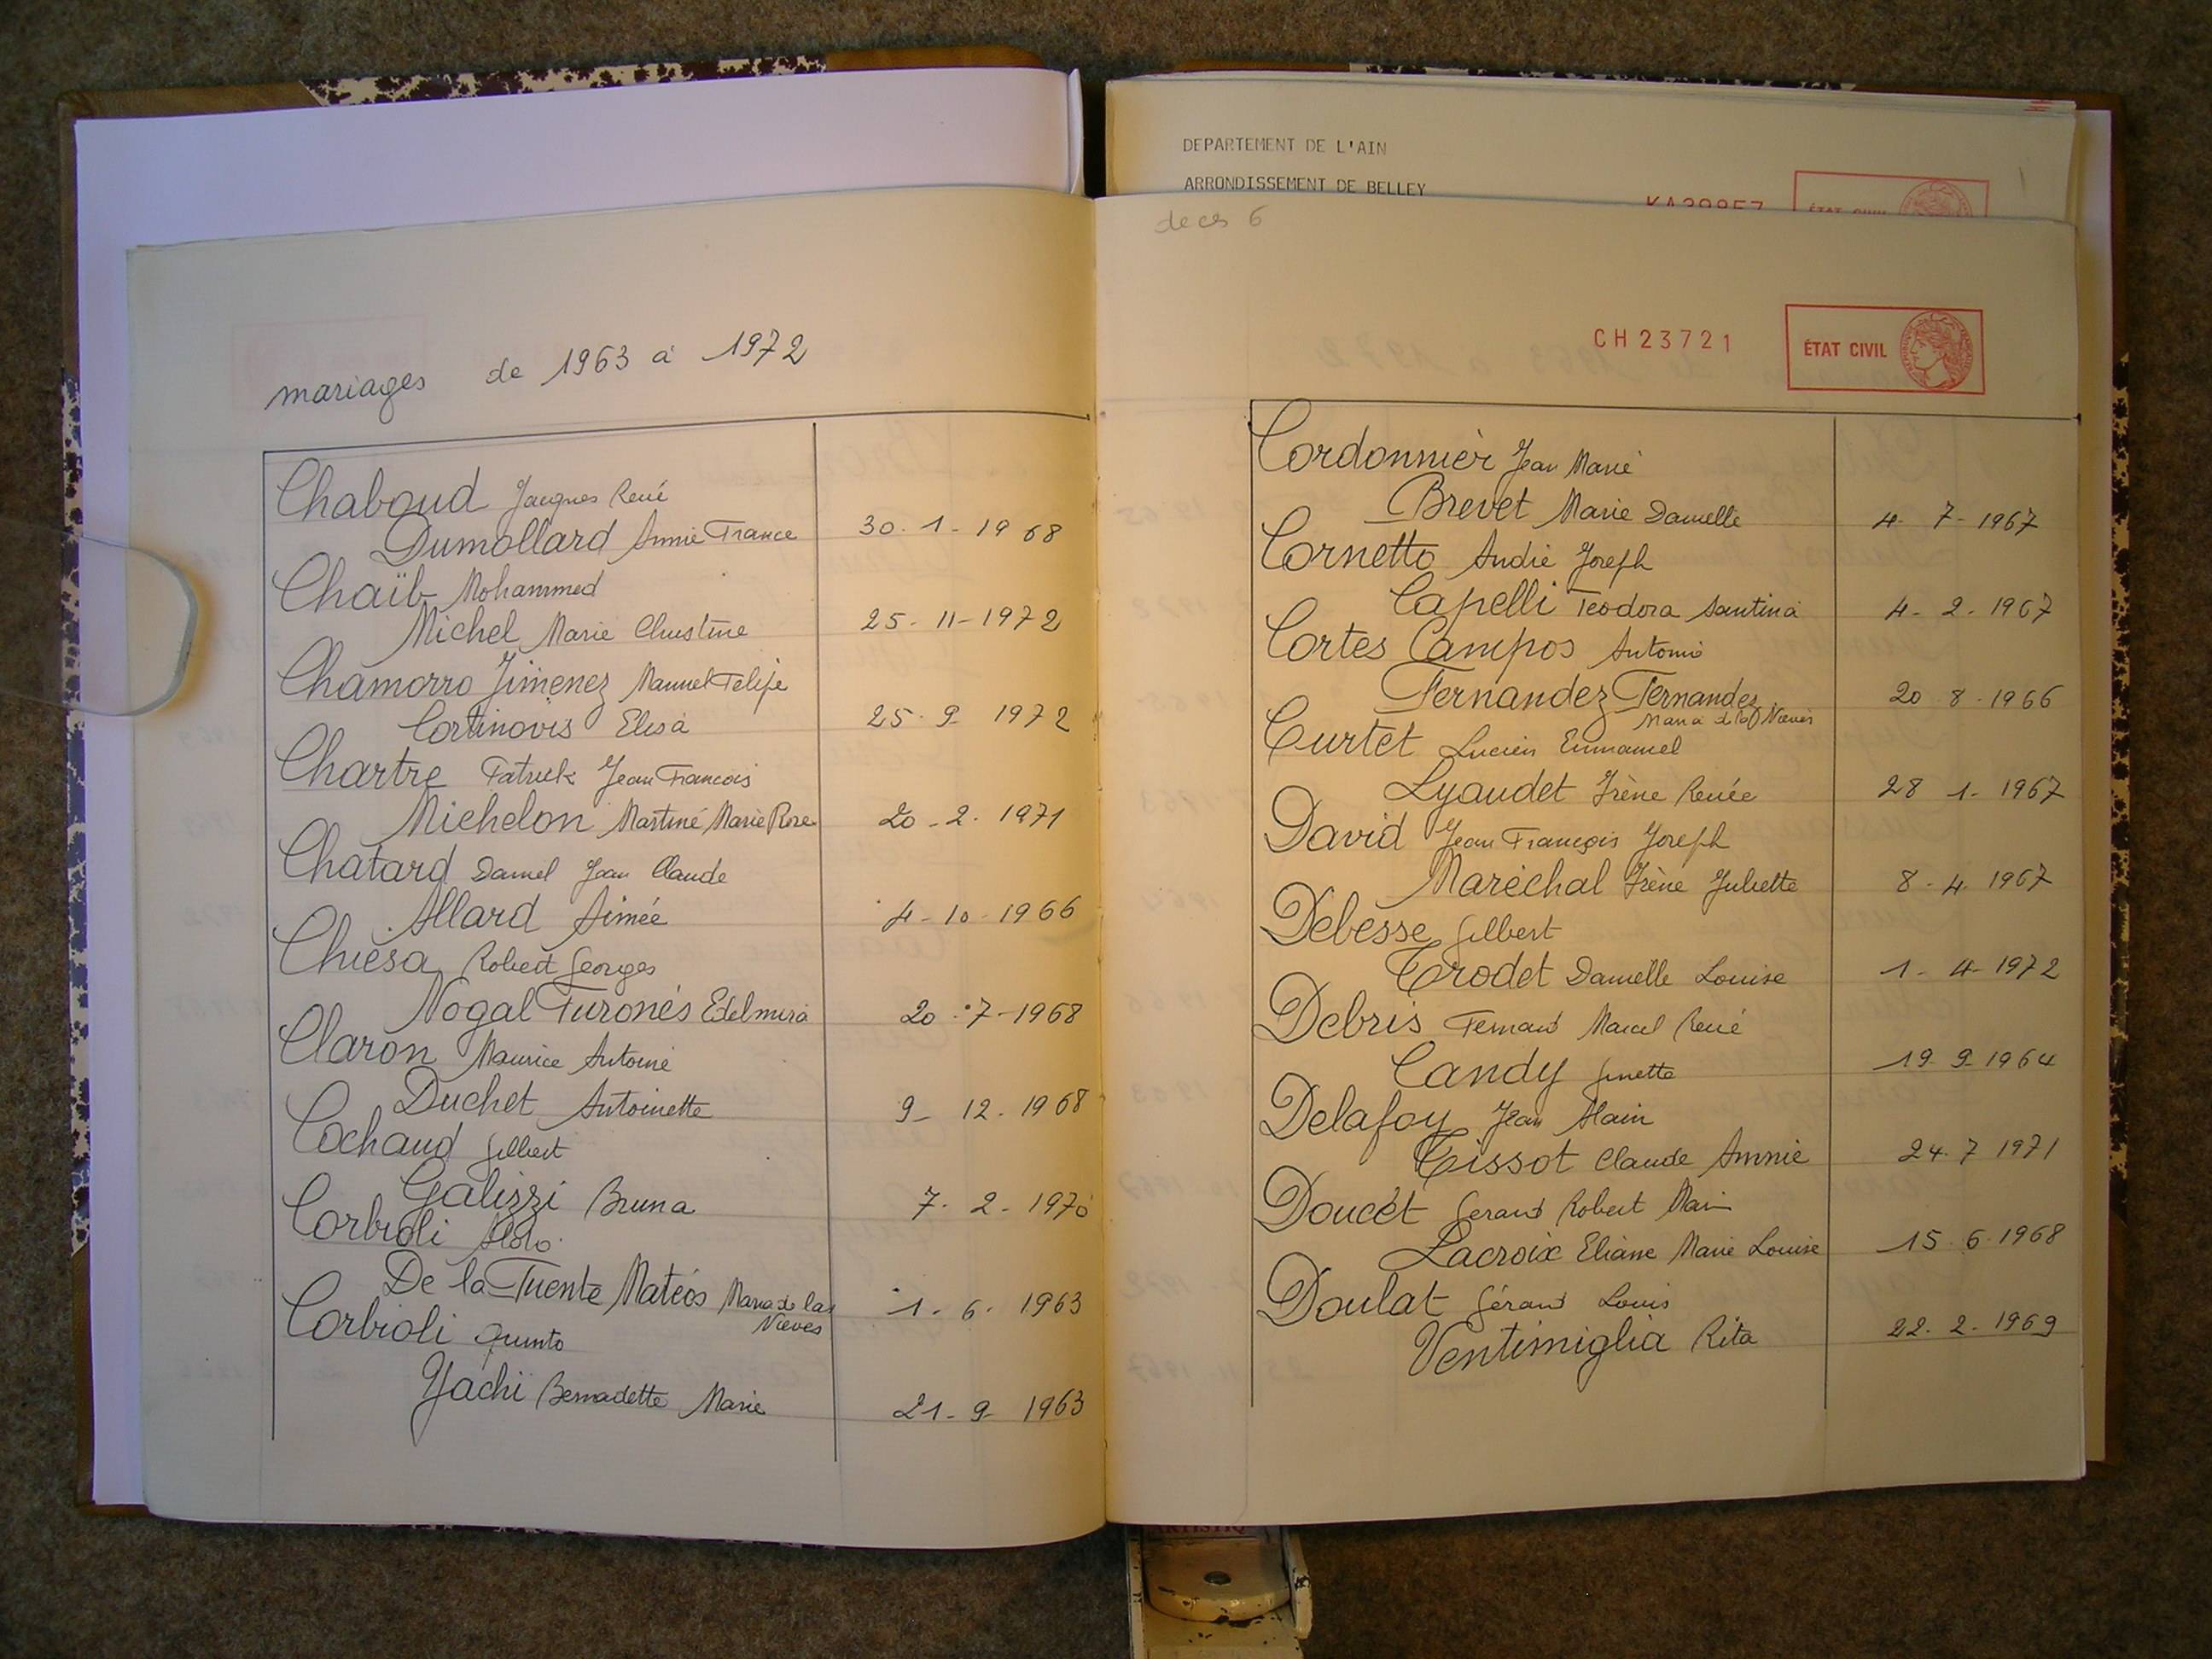 mariages de 1963 à 1972
Chaboud Jacques René
Dumollard Annie France 30-1-1968
Chaïb Mohammed
Michel Marie Christine 25-11-1972
Chamorro Jimenez Manuel Felipe
Cortinovis Elisa 25-9 1972
Chartre Patrick Jean François
Michelon Martine Marie Rose 20-2-1971
Chatard Daniel Jean Claude
Allard Aimée 4-10-1966
Chiesa Robert Georges
Nogal Turonés Edelmira 20-7-1968
Claron Maurice Antoine
Duchet Antoinette 9-12-1968
Cochaud Gilbert
Galizzi Bruna 7-2-1970
Corbioli Aldo
De la Fuente Matéos Maria de las 1-6-1963
Nieves
Corbioli Quinto
Yachi Bernadette Marie 21-9-1963
DEPARTEMENT DE L'AIN
ARRONDISSEMENT DE BELLEY
deces 6
CH23721
ÉTAT CIVIL
Cordonnier Jean Marie
Brevet Marie Danielle 4-7-1967
Cornetto André Joseph
Capelli Teodora Santina 4-2-1967
Cortes Campos Antonio
Fernandez Fernandez 20 8-1966
Maria de las Nieves
Curtet Lucien Emmanuel
Lyaudet Irène Renée 28 1-1967
David Jean François Joseph
Maréchal Irène Juliette 8-4 1967
Debesse Gilbert
Trodet Danielle Louise 1-4-1972
Debris Fernand Marcel René
Candy Ginette 19-9-1964
Delafoy Jean Alain
Tissot Claude Annie 24-7 1971
Doucet Gerard Robert
Lacroix Eliane Marie Louise 15-6-1968
Doulat Gérard Louis
Ventimiglia Rita 22-2-1969